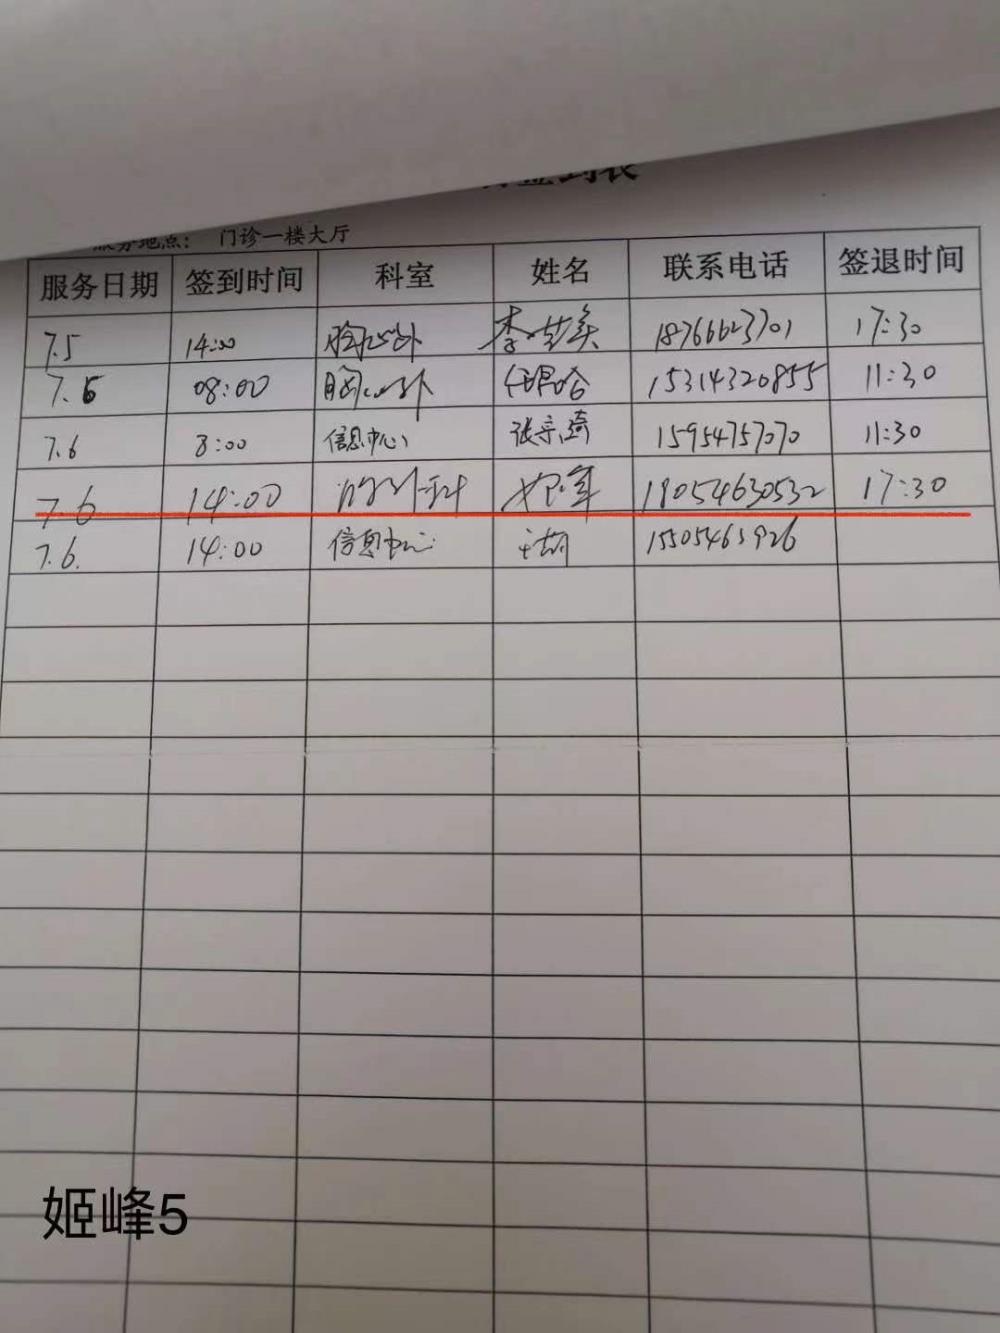 服务地点： 门诊一楼大厅
服务日期 签到时间 科室 姓名 联系电话 签退时间
7.5 14:00 胸心外 李 18766623701 17:30
7.6 08:00 胸心外 15314320855 11:30
7.6 8:00 信息中心 张宗琦 15954757070 11:30
7.6 14:00 外科 姬峰 18054630532 17:30
7.6. 14:00 信息中心 15505463926
姬峰5